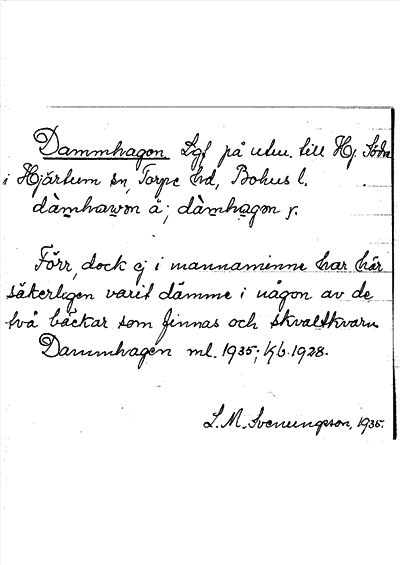 Dammhagen. Lgf på utm. till Hj. Södra
i Hjärtum sn, Torpe hd, Bohus l.
dàmhawən ä; dàmhagən y.
Förr, dock ej i mannaminne har här
säkerligen varit dämme i någon av de
två bäckar som finnas och skvaltkvarn.
Dammhagen ml. 1935; Kb. 1928.
L. M. Svenungsson, 1935.